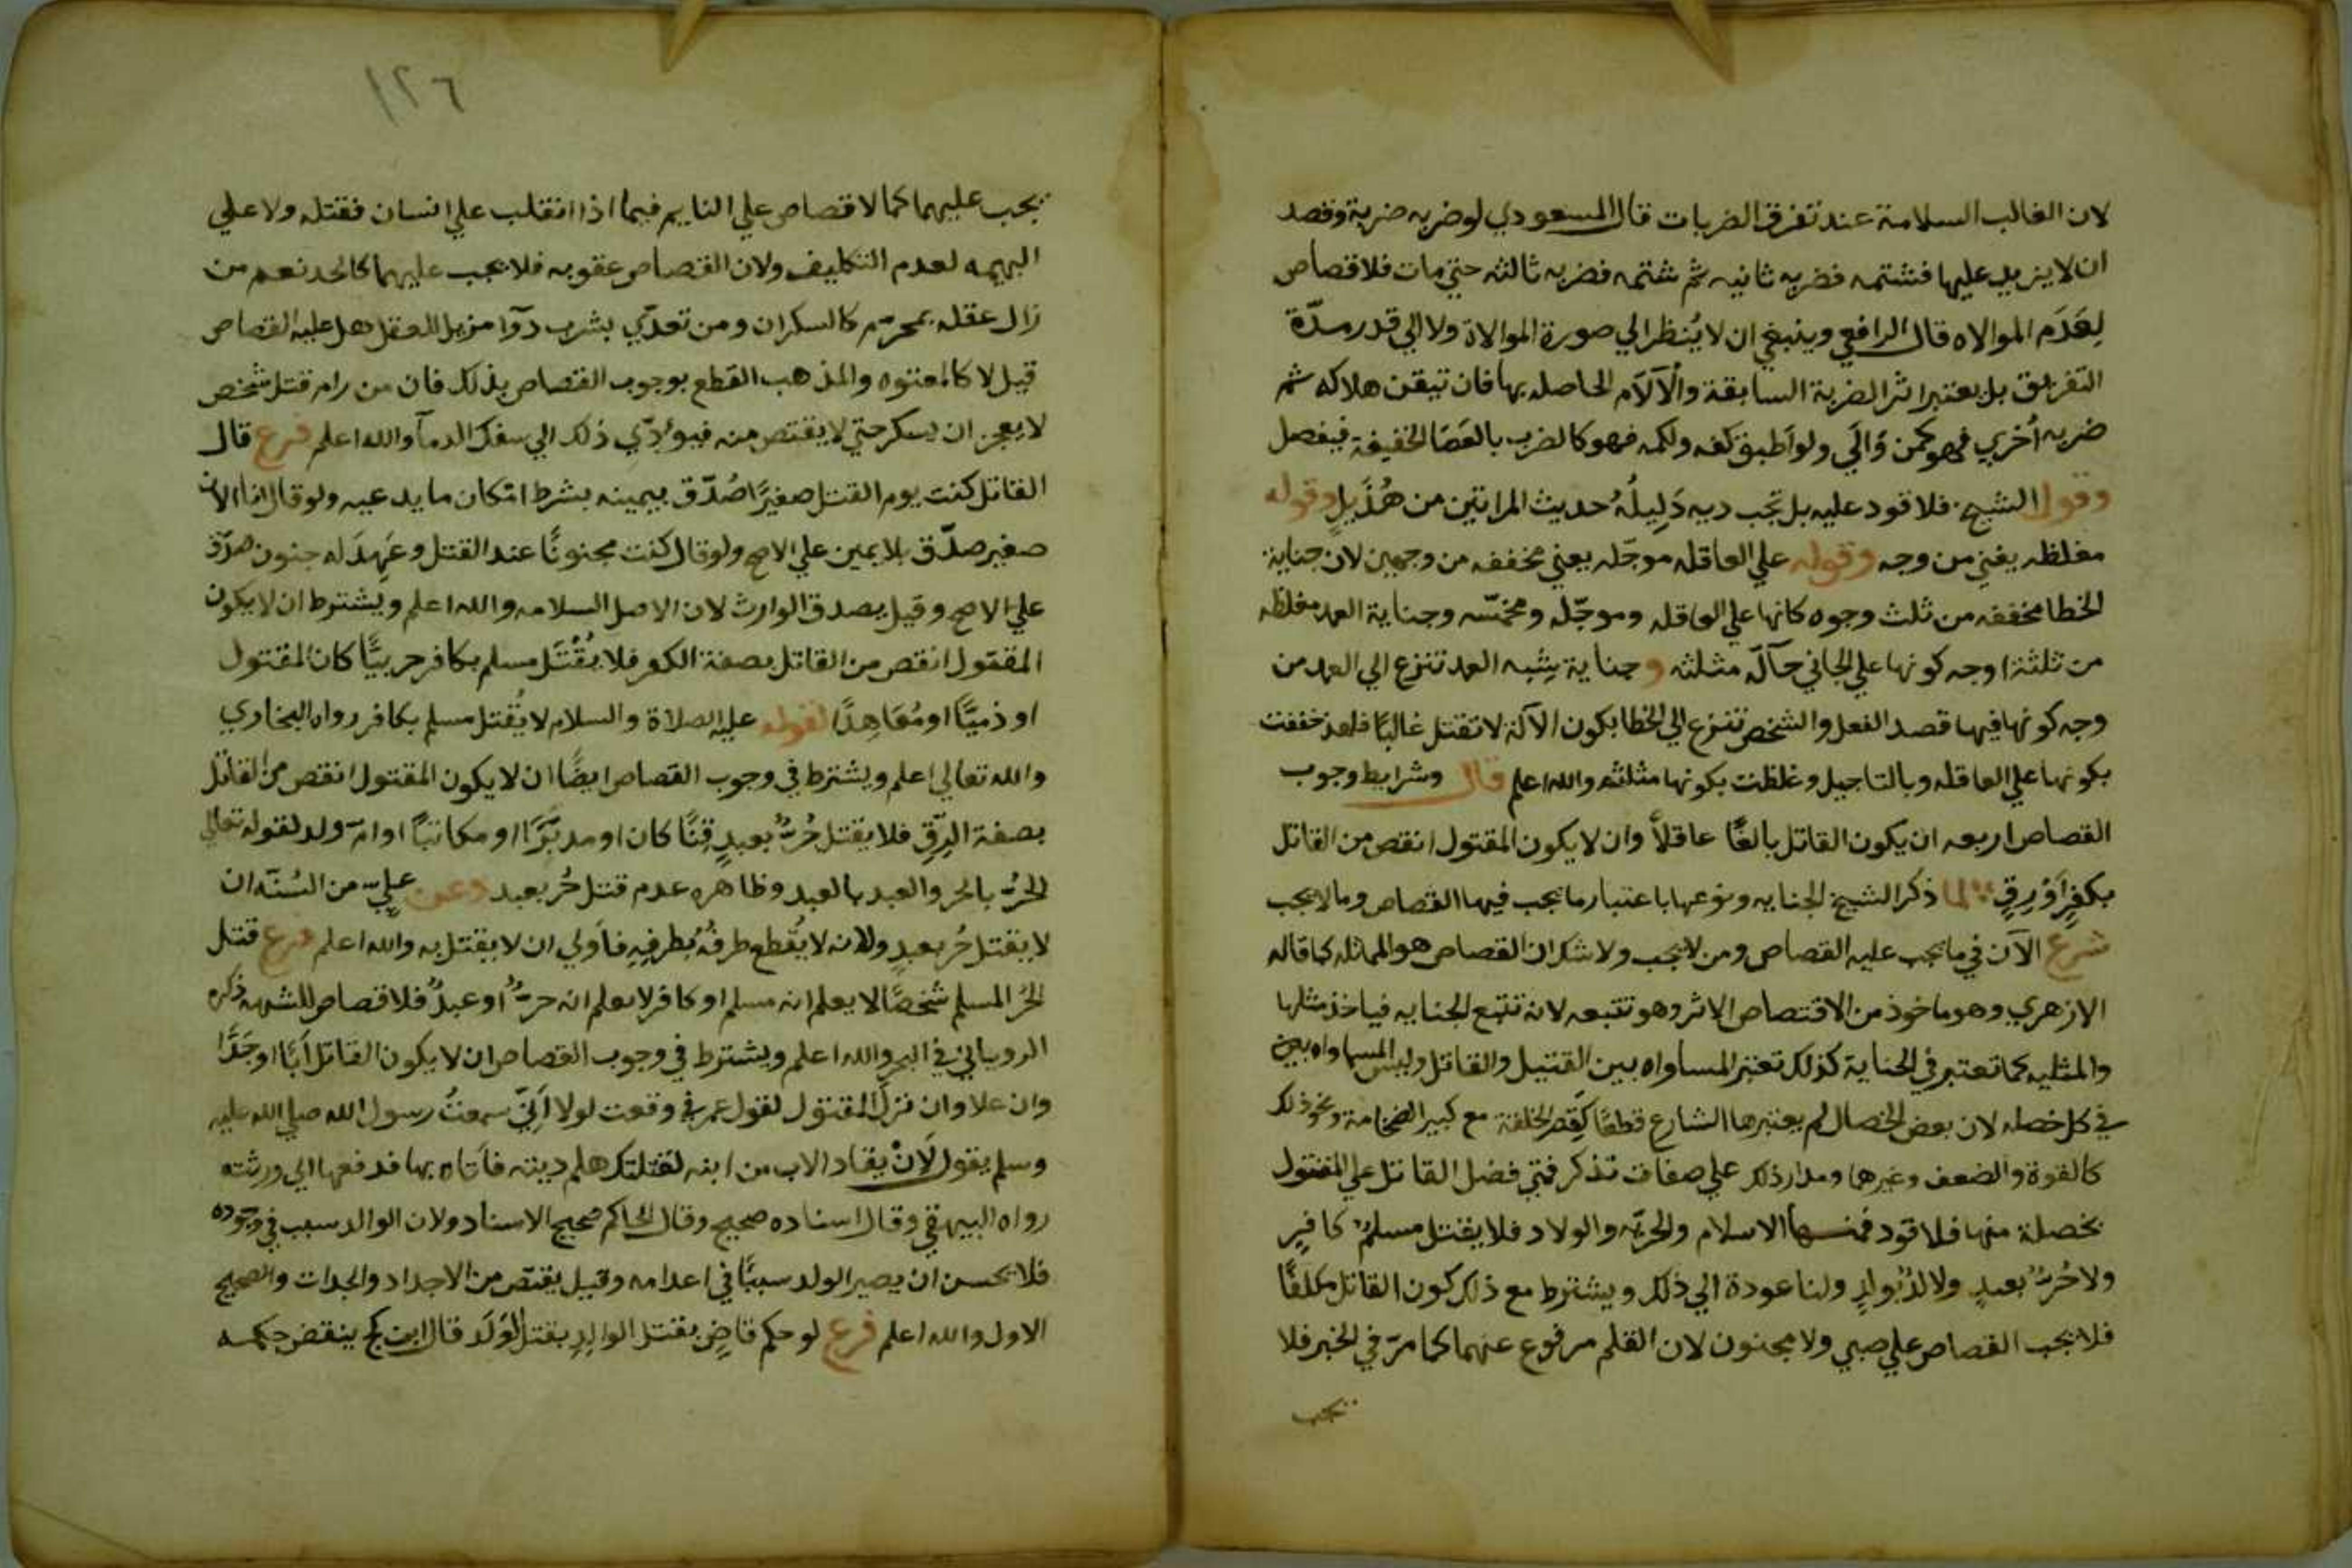 لان الغالب السلامة عند تفرق الضربات قال المسعودي لو ضربه ضربة وقصد
ان لا يزيد عليها فشتمه فضربه ثانيه ثم شتمه فضربه ثالثه حتي مات فلا قصاص
لِعَدَم الموالاه قال الرافعي وينبغي ان لا يُنظر الي صورة الموالاة ولا الي قدر مدّة
التفريق بل يعتبر اثر الضربة السابقة والآلآم الحاصله بها فان تيقن هلاكه ثم
ضربه أخري فهو كمن وَالَي ولو اَطبق كفه ولكمه فهو كالضرب بالعَصَا الخفيفة فيفصل
وقول الشيخ فلا قود عليه بل تجب ديه دَلِيلُهُ حديث المراتين من هُذَيلٍ وقوله
مغلظه يعني من وجه وقوله علي العاقله موجّله يعني مخففه من وجهين لان جناية
الخطا مخففه من ثلث وجوه كانها علي العاقله وموجّله ومخمّسه وجناية العمد مغلظه
من ثلثة اوجه كونها علي الجاني حآلّه مثلثه وجناية يشبه العمد تنزع الي العمد من
وجه كونها فيها قصد الفعل والشخص تنزع الي الخطا بكون الآلة لا تقتل غالبًا فلهذ خففت
بكونها علي العاقله وبالتاجيل وغلظت بكونها مثلثه والله اعلم قال وشرايط وجوب
القصاص اربعه ان يكون القاتل بالغًا عاقلاً وان لا يكون المقتول انقص من القاتل
بكفرٍ اَوْ رِقٍ لما ذكر الشيخ الجنايه ونوعها باعتبار ما يجب فيها القصاص وما لا يجب
شرع الآن في ما يجب عليه القصاص ومن لا يجب ولا شك ان القصاص هو المماثله كما قاله
الازهري وهو ماخوذ من الاقتصاص الاثر وهو تتبعه لانه تتبع الجنايه فياخذ مثلها
والمثليه كما تعتبر في الجناية كذلك تعتبر المساواه بين القتيل والقاتل وليس المساواه بين
في كل خصله لان بعض الخصال لم يعتبرها الشارع قطعًا كَقِصَر الخلقة مع كبير الضخامة ونحو ذلك
كالقوة والضعف وغيرهما ومدار ذلك علي صفات تذكر فمتي فضل القاتل علي المقتول
بخصلة منها فلا قود فمنها الاسلام والحريّه والولاد فلا يقتل مسلمٌ كافرٍ
ولا حُرٌّ بعبدٍ ولا لدٌ بوالدٍ ولنا عودة الي ذلك ويشترط مع ذلك كون القاتل مكلفًا
فلا يجب القصاص علي صبي ولا مجنون لان القلم مرفوع عنهما كما مرّ في الخبر فلا
يجب
١٢٦
يجب عليهما كما لا قصاص علي النايم فيما اذا انقلب علي انسان فقتله ولا علي
البهيمه لعدم التكليف ولان القصاص عقوبه فلا يجب عليهما كالحد نعم من
زال عقله بمحرّم كالسكران ومن تعدّي بشرب دوآ مزيل للعقل هل عليه القصاص
قيل لا كالمعتوه والمذهب القطع بوجوب القصاص بذلك فان من رام قتل شخص
لا يعجز ان يسكر حتي لا يقتص منه فيوَدّي ذلك الي سفك الدمآ والله اعلم فرع قال
القاتل كنت يوم القتل صغيرًا صُدّق بيمينه بشرط امكان ما يدعيه ولو قال انا الان
صغير صدّق بلا يمين علي الاصح ولو قال كنت مجنونًا عند القتل وعَهِدَ له جنون صدّق
علي الاصح وقيل يصدق الوارث لان الاصل السلامه والله اعلم ويشترط ان لا يكون
المقتول انقص من القاتل بصفة الكفر فلا يُقْتَل مسلم بكافر حربيًّا كان المقتول
او ذميًّا او مُعَاهِدًا لقوله عليه الصلاة والسلام لا يُقتل مسلم بكافر رواه البخاري
والله تعالي اعلم ويشترط في وجوب القصاص ايضًا ان لا يكون المقتول انقص من القاتل
بصفة الرِّق فلا يقتل حُرٌّ بعبدٍ قِنًّا كان او مدبّرًا او مكاتبًا او امّ ولد لقوله تعالي
الحُرُّ بالحر والعبد بالعبد وظاهره عدم قتل حُر بعبد وعن عليّ من السُنّه ان
لا يقتل حُر بعبدٍ ولانه لا يُقطع طرفُهُ بطرفِهِ فاَولي ان لا يقتل به والله اعلم فرع قتل
الحُر المسلم شخصًا لا يعلم انه مسلم او كافر لا يعلم انه حرٌّ او عبدٌ فلا قصاص للشبهه ذكره
الروياني في البحر والله اعلم ويشترط في وجوب القصاص ان لا يكون القاتل اَبًا او جَدًّا
وان علا وان نزل المقتول لقول عمر في وقعت لولا اَنِّي سمعتُ رسول الله صلي الله عليه
وسلم يقول لَانْ يقاد الاب من ابنه لقتلتك هلم ديته فاَتاه بها فدفعها الي ورثته
رواه البيهقي وقال اسناده صحيح وقال الحاكم صحيح الاسناد ولان الوالد سبب في وجوده
فلا يحسن ان يصير الولد سببًا في اعدامه وقيل يقتصّ من الاجداد والجدات والصحيح
الاول والله اعلم فرع لو حكم قاضٍ بقتل الوالدِ بقتل الوَلَد قال ابن كج ينقض حكمه